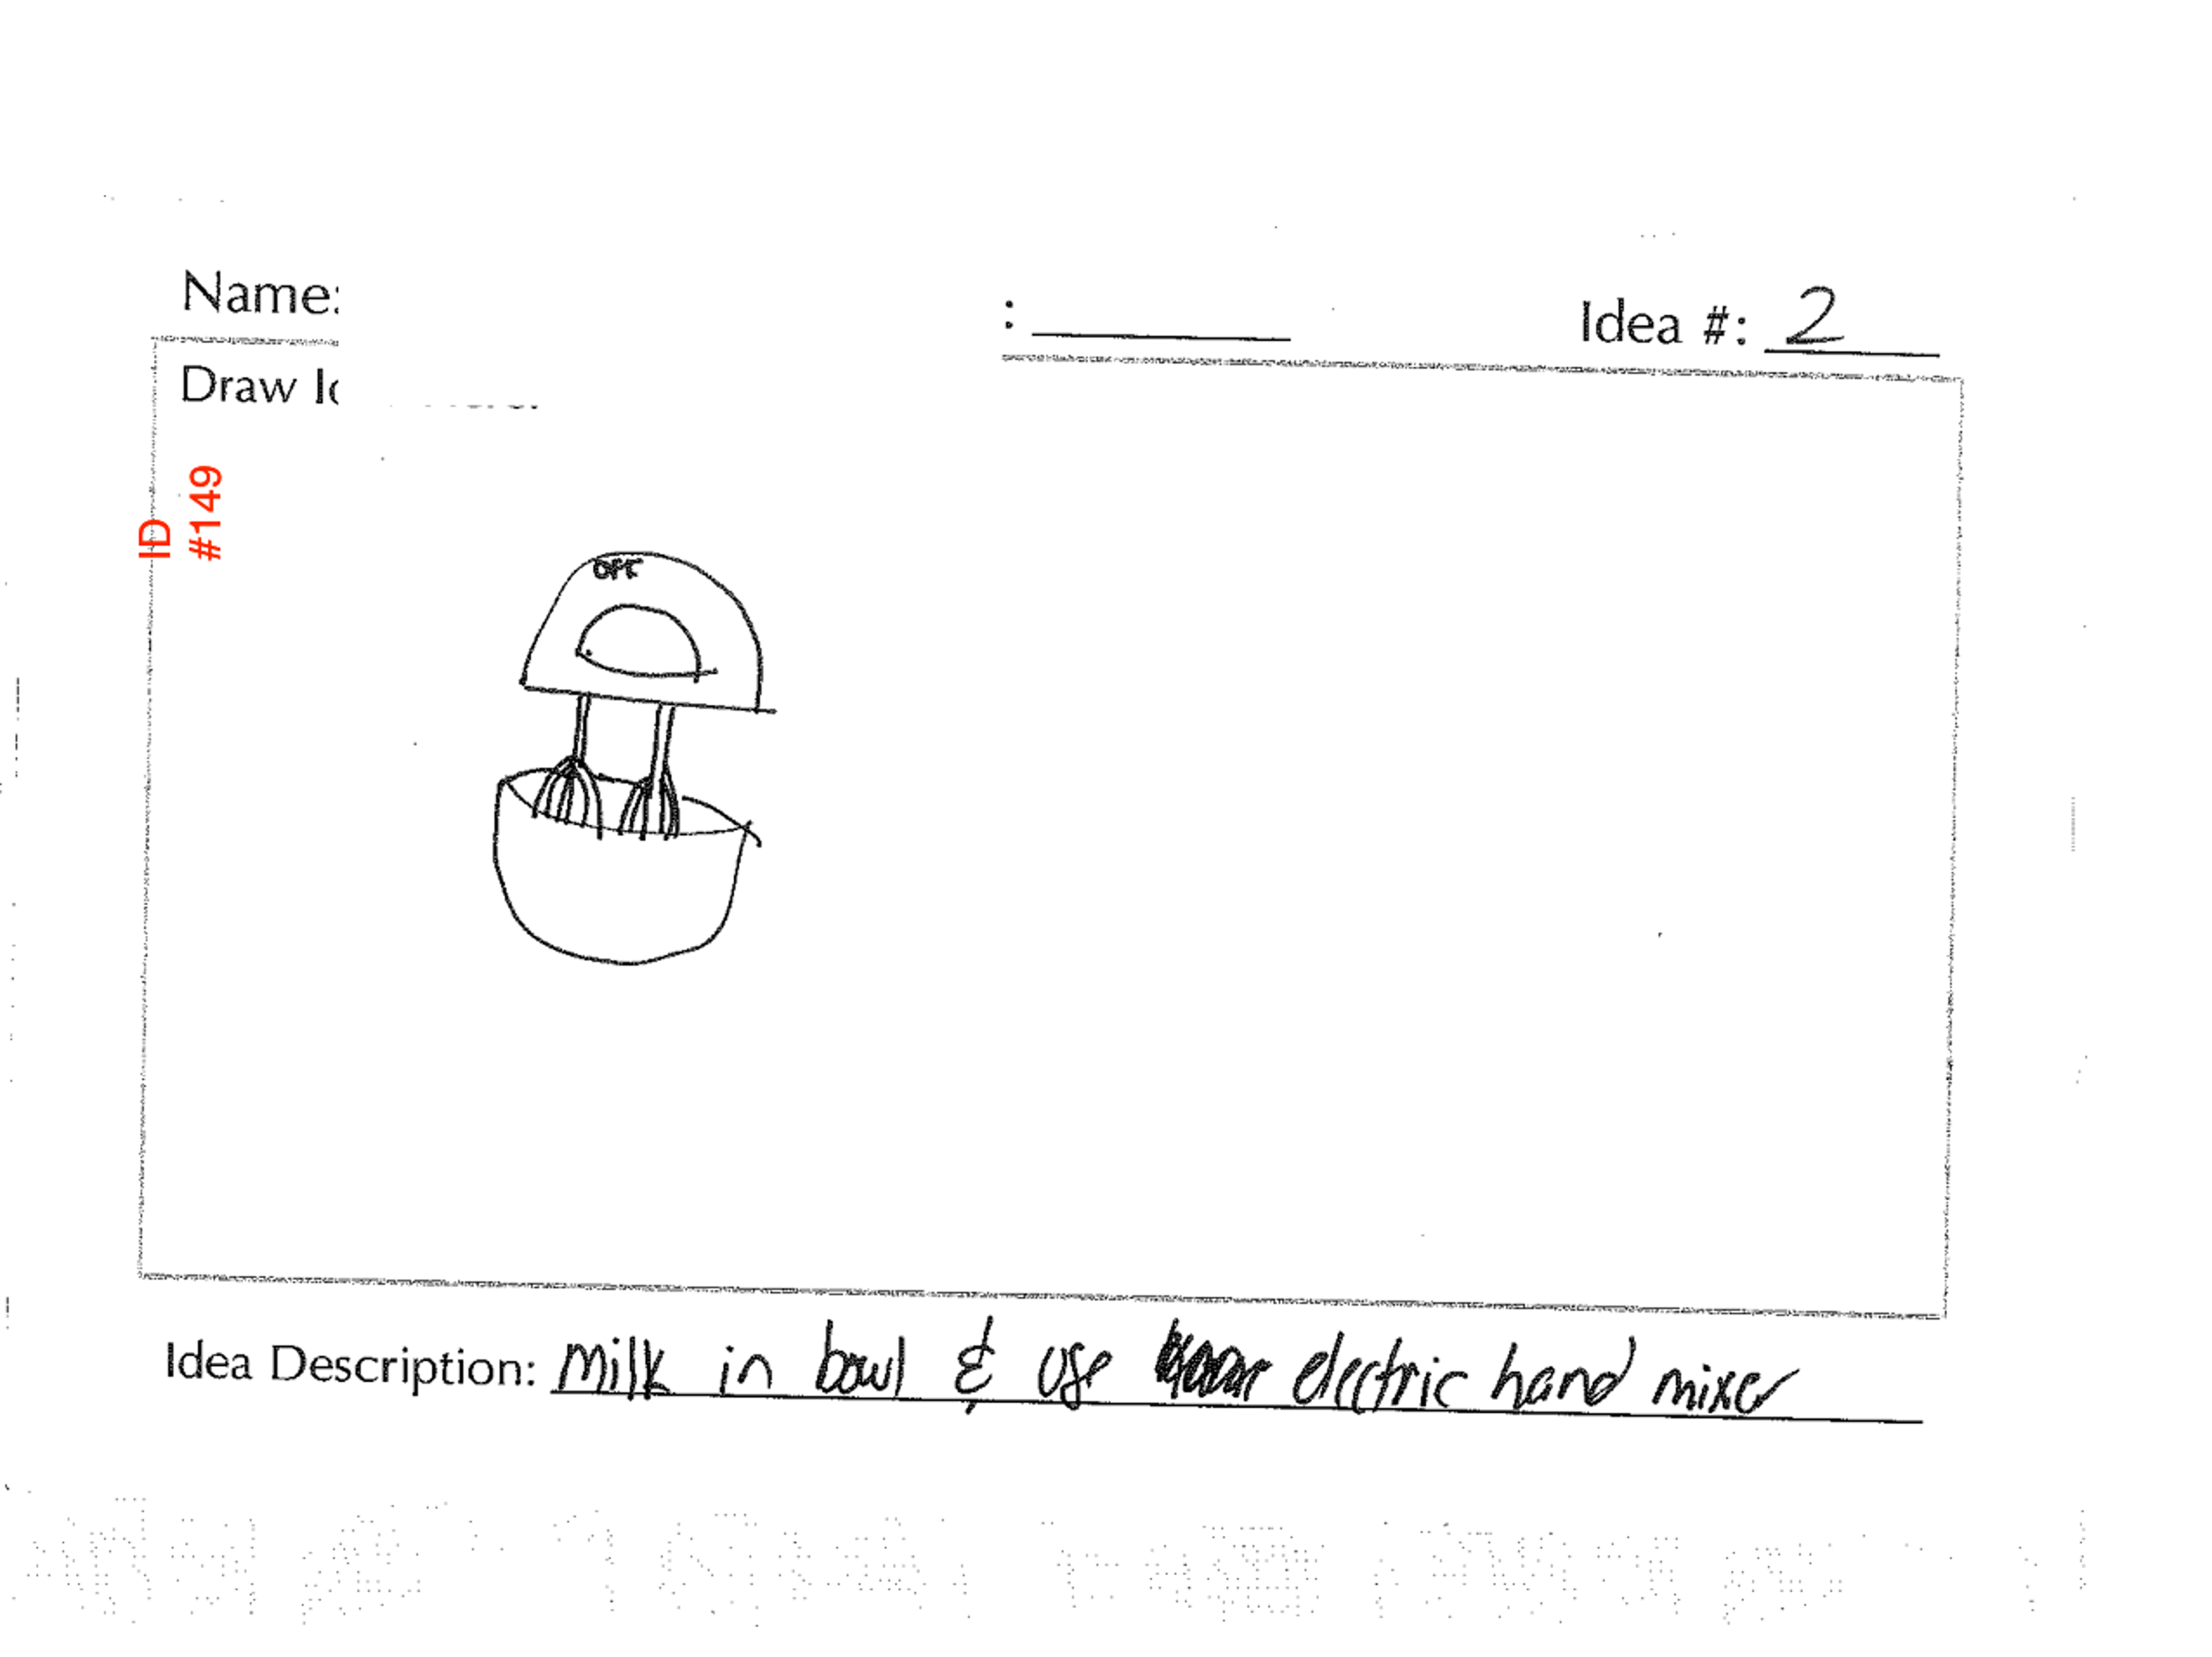 Name:
: Idea #: 2
Draw Id
ID
#149
OFF
Idea Description: milk in bowl & use electric hand mixer